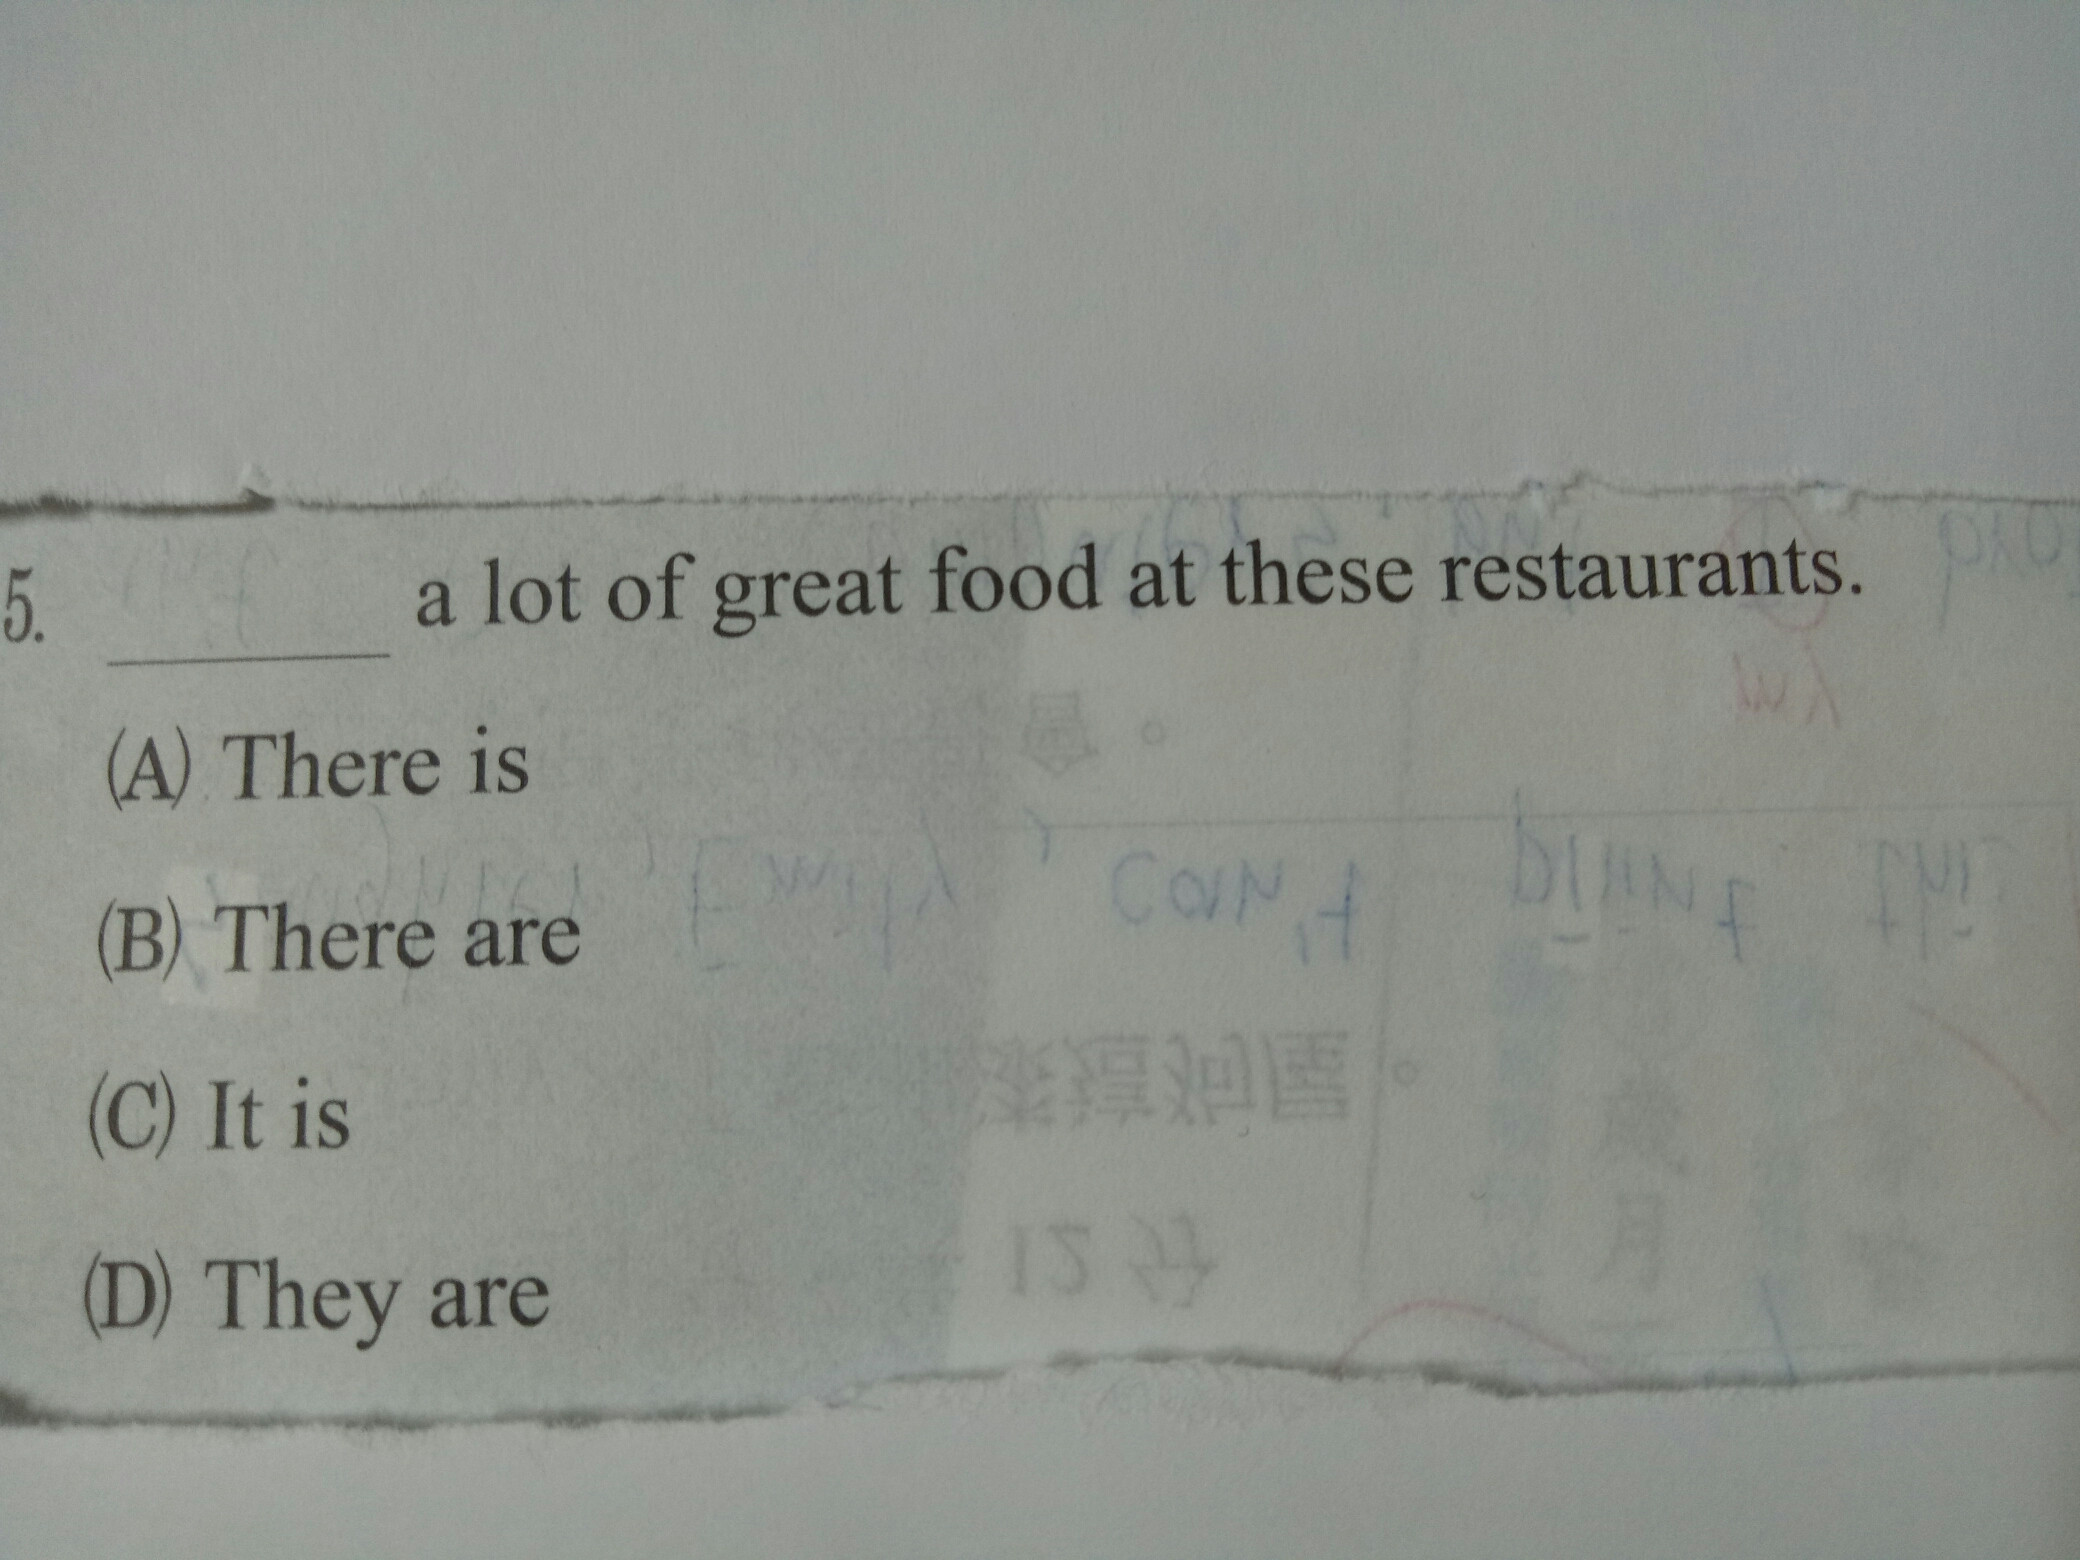 5. ______ a lot of great food at these restaurants.
(A) There is
(B) There are
(C) It is
(D) They are